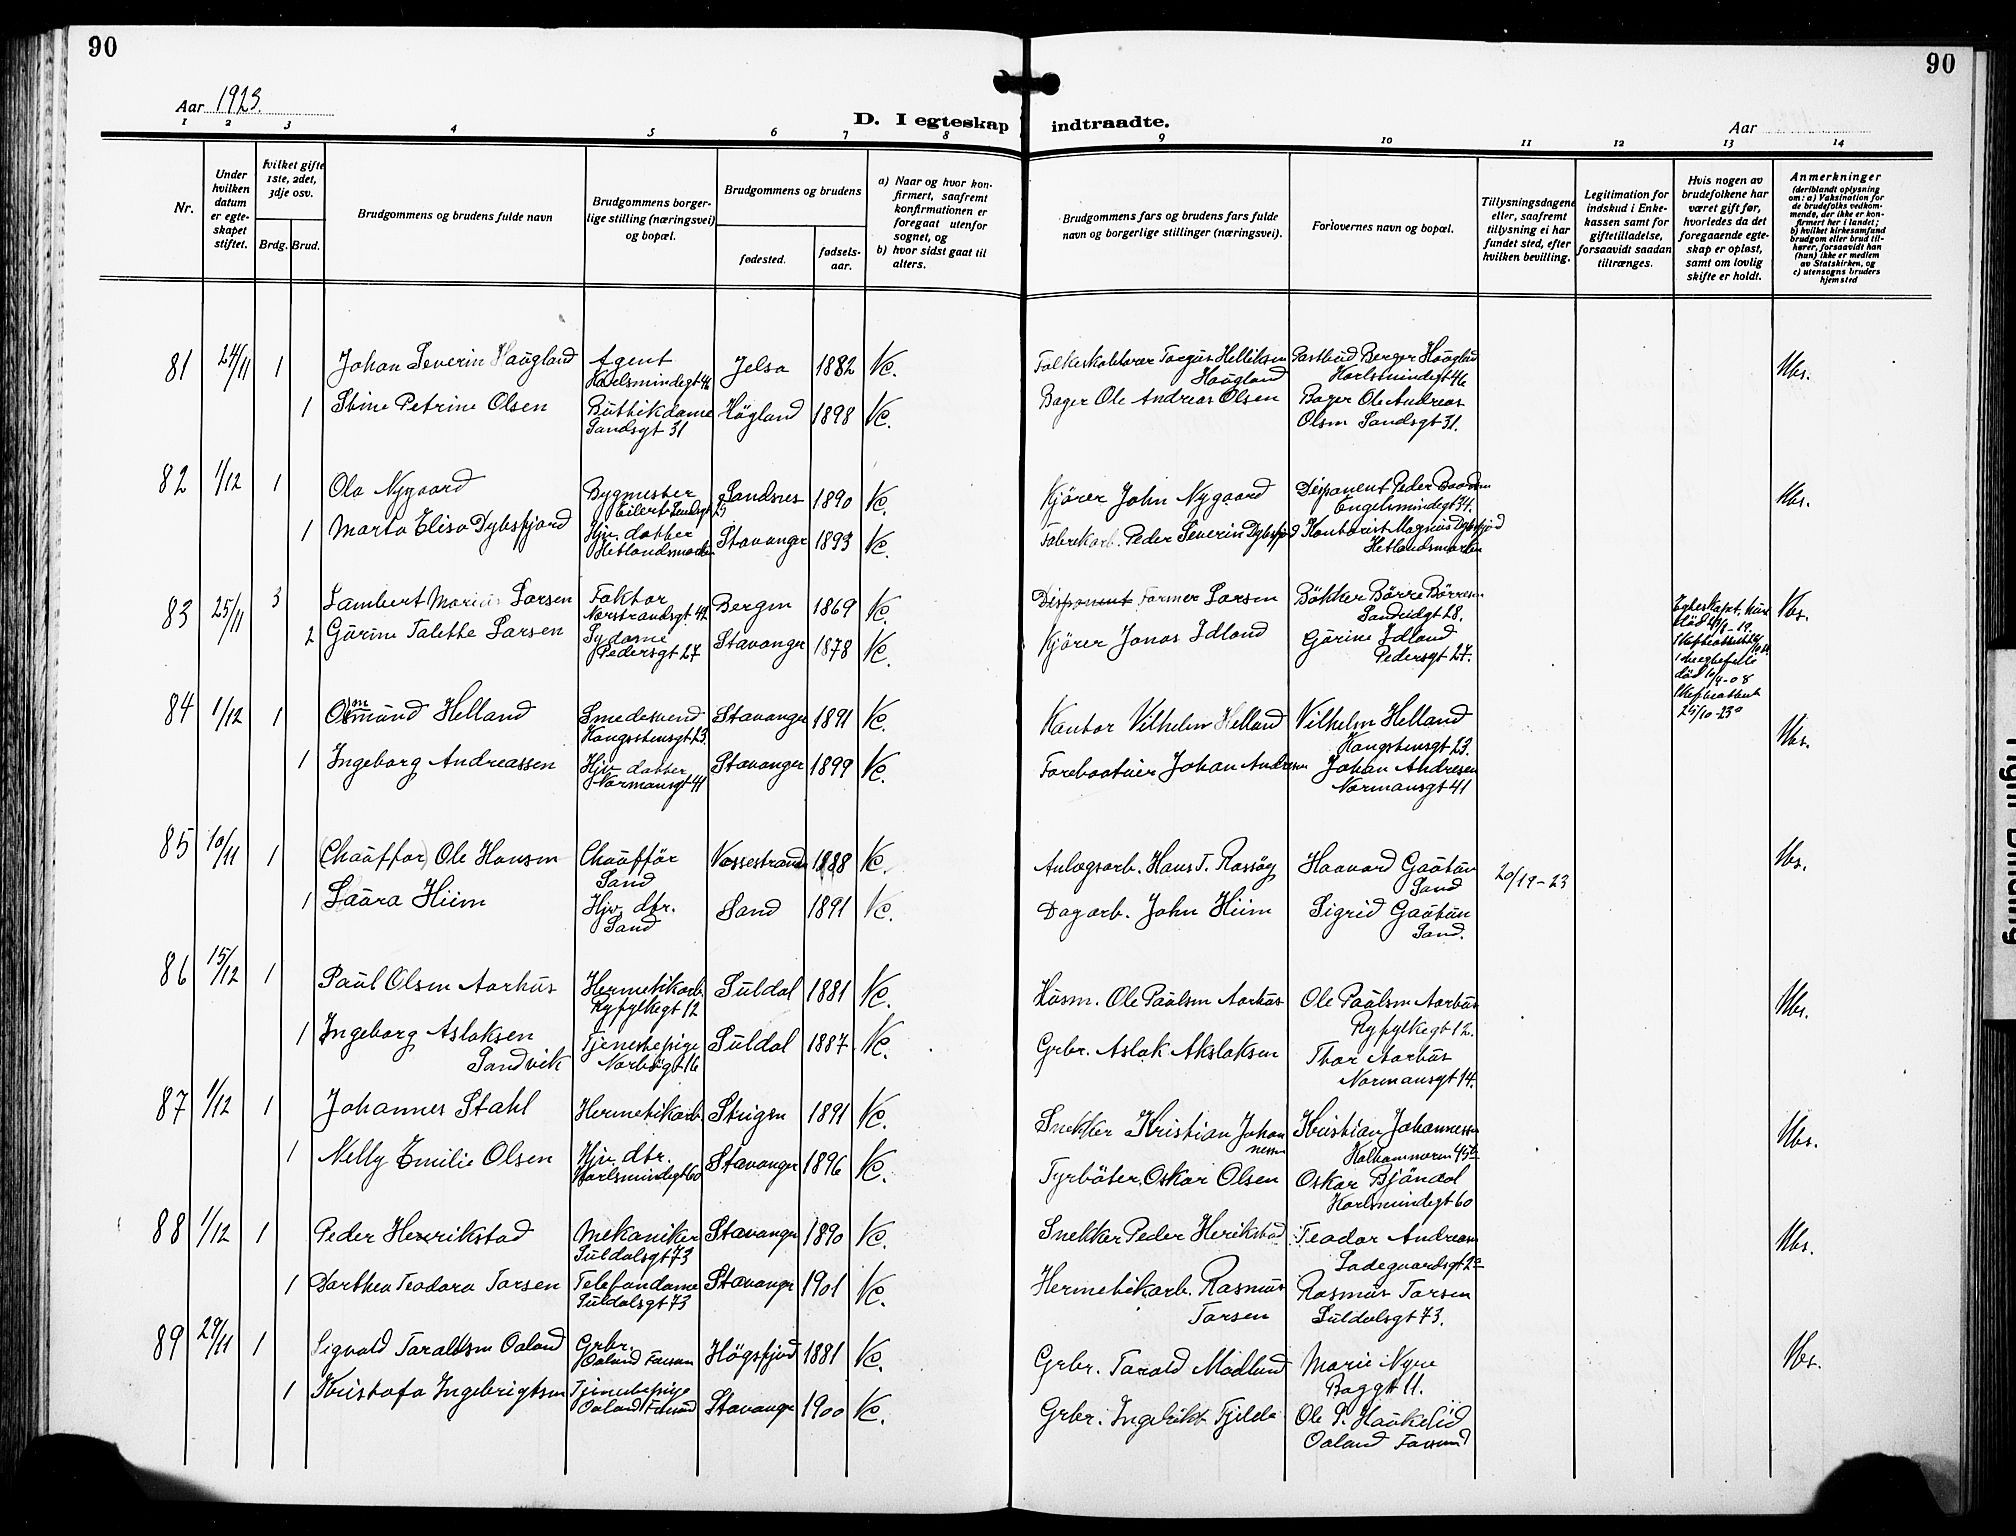 90
90
Aar 1923.
D. I egteskap indtraadte.
Aar
1 2 3 4 5 6 7 8 9 10 11 12 13 14
Nr.
Under hvilken datum er egteskapet stiftet.
hvilket gifte 1ste, 2det, 3dje osv.
Brdg. Brud.
Brudgommens og brudens fulde navn
Brudgommens borgerlige stilling (næringsvei) og bopæl.
Brudgommens og brudens
fødested.
fødselsaar.
a) Naar og hvor konfirmert, saafremt konfirmationen er foregaat utenfor sognet, og
b) hvor sidst gaat til alters.
Brudgommens fars og brudens fars fulde navn og borgerlige stillinger (næringsvei).
Forlovernes navn og bopæl.
Tillysningsdagene eller, saafremt tillysning ei har fundet sted, efter hvilken bevilling.
Legitimation for indskud i Enkekassen samt for giftetilladelse, forsaavidt saadan tiltrænges.
Hvis nogen av brudefolkene har været gift før, hvorledes da det foregaaende egteskap er opløst, samt om lovlig skifte er holdt.
Anmerkninger (deriblandt oplysning om: a) Vaksination for de brudefolks vedkommende, der ikke er konfirmert her i landet; b) hvilket kirkesamfund brudgom eller brud tilhører, forsaavidt han (hun) ikke er medlem av Statskirken, og c) utensogns bruders hjemsted
81 24/11 1 Johan Severin Haugland Agent Karlsmindegt 46 Jelsa 1882 Kc. Torgus Helliksen Haugland Postbud Berger Haugland Karlsmindegt 46 Kbs.
1 Stine Petrine Olsen Butikdame Sandsgt 31 Högland 1898 Kc. Bager Ole Andreas Olsen Bager Ole Andreas Olsen Sandsgt 31.
82 1/12 1 Ola Nygaard Bygmester Sandnes 1890 Kc. Kjörer John Nygaard Disponent Peder Engelsmindegt 34. Kbs.
1 Marta Elisa Dybsfjord Hjv. datter Hetlandsmarken Stavanger 1893 Kc. Fabrikarb. Peder Severin Dybsfjord Kontorist Magnus Dybsfjord Hetlandsmarken
83 25/11 3 Lambert Marius Larsen Faktor Nørstrandsgt. 42 Bergen 1869 Kc. Disponent Farmer Larsen Bökker Börre Börresen Sandeidgt 28. Kbs.
2 Gürine Talette Larsen Sydame Pedersgt 27 Stavanger 1878 Kc. Kjörer Jonas Idland Gürine Idland Pedersgt 27.
84 1/12 1 Osmund Helland Smedesvend Kongstensgt. 23. Stavanger 1891 Kc. Kantor Vilhelm Helland Vilhelm Helland Kongstensgt 23. Kbs.
1 Ingeborg Andreassen Hjv. datter Normansgt 41 Stavanger 1899 Kc. Johan Andresen Johan Andresen Normansgt 41
85 10/11 1 (Chauffør) Ole Hansen Chauffør Sand Vossestranden 1888 Kc. Anlægsarb. Hans T. Rossöy Haavard Gautun Sand 20/19-23 Kbs.
1 Laura Hiim Hjv. dtr. Sand Sand 1891 Kc. Dagarb. John Hiim Sigrid Gautun Sand.
86 15/12 1 Paul Olsen Aarhus Hermetikarb. Ryfylkegt 12 Suldal 1881 Kc. Husm. Ole Paulsen Aarhus Ole Paulsen Aarhus Ryfylkegt 12. Kbs.
1 Ingeborg Aslaksen Sandvik Tjenestepige Norbögt 16 Suldal 1887 Kc. Grbr. Aslak Akslaksen Thor Aarhus Normansgt 14.
87 1/12 1 Johannes Stahl Hermetikarb. 1891 Kc. Snekker Kristian Johannesen Kristian Johannessen Kalhammeren 45b Kbs.
1 Nelly Emilie Olsen Hjv. dtr. Karlsmindegt 60 Stavanger 1896 Kc. Fyrböter. Oskar Olsen Oskar Bjöndal Karlsmindegt 60
88 1/12 1 Peder Henrikstad Mekaniker Suldalsgt 73 Stavanger 1890 Kc. Snekker Peder Herikstad Teodor Andreasen Ladegaardsgt 2a Kbs.
1 Dorthea Teodora Torsen Telefondame Suldalsgt 73 Stavanger 1901 Kc. Hermetikarb. Rasmus Torsen Rasmus Torsen Suldalsgt 73.
89 29/11 1 Sigvald Taraldsen Oaland Grbr. Oaland Fossan Högsfjord 1881 Kc. Grbr. Tarald Modland Marie Nyre Baggt 11. Kbs.
1 Kristofa Ingebrigtsen Tjenestepige Oaland Stavanger 1900 Kc. Grbr. Ingebrikt Tjilde Ole P. Haukelid Oaland